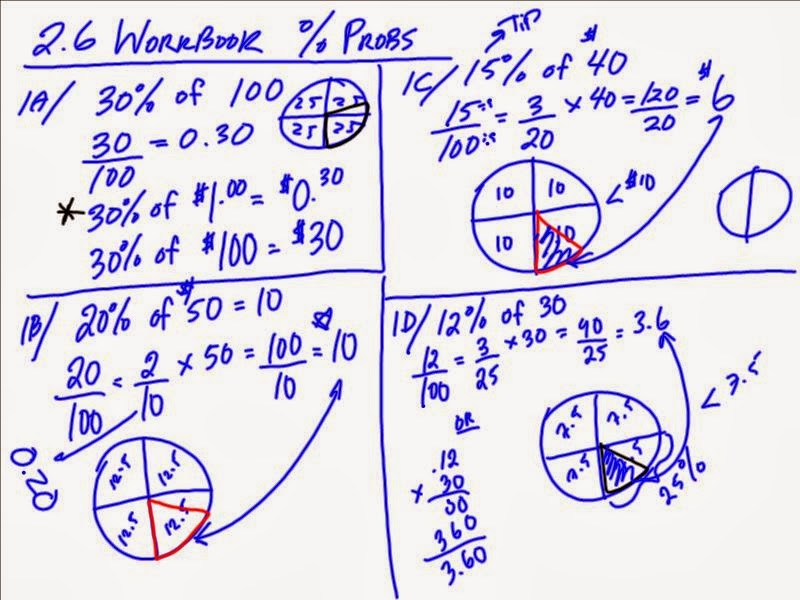 2.6 WORKBOOK % PROBS
1A/ 30% of 100
25 25
25 25
30/100 = 0.30
* 30% of $1.00 = $0.30
30% of $100 = $30
TIP
1C/ 15% of $40
15÷5/100÷5 = 3/20 × 40 = 120/20 = $6
10 10
10 10
< $10
1B/ 20% of $50 = 10
20/100 = 2/10 × 50 = 100/10 = $10
0.20
12.5 12.5
12.5 12.5
1D/ 12% of 30
12/100 = 3/25 × 30 = 90/25 = 3.6
< 7.5
7.5 7.5
7.5 5
25%
OR
.12
× 30
00
360
3.60